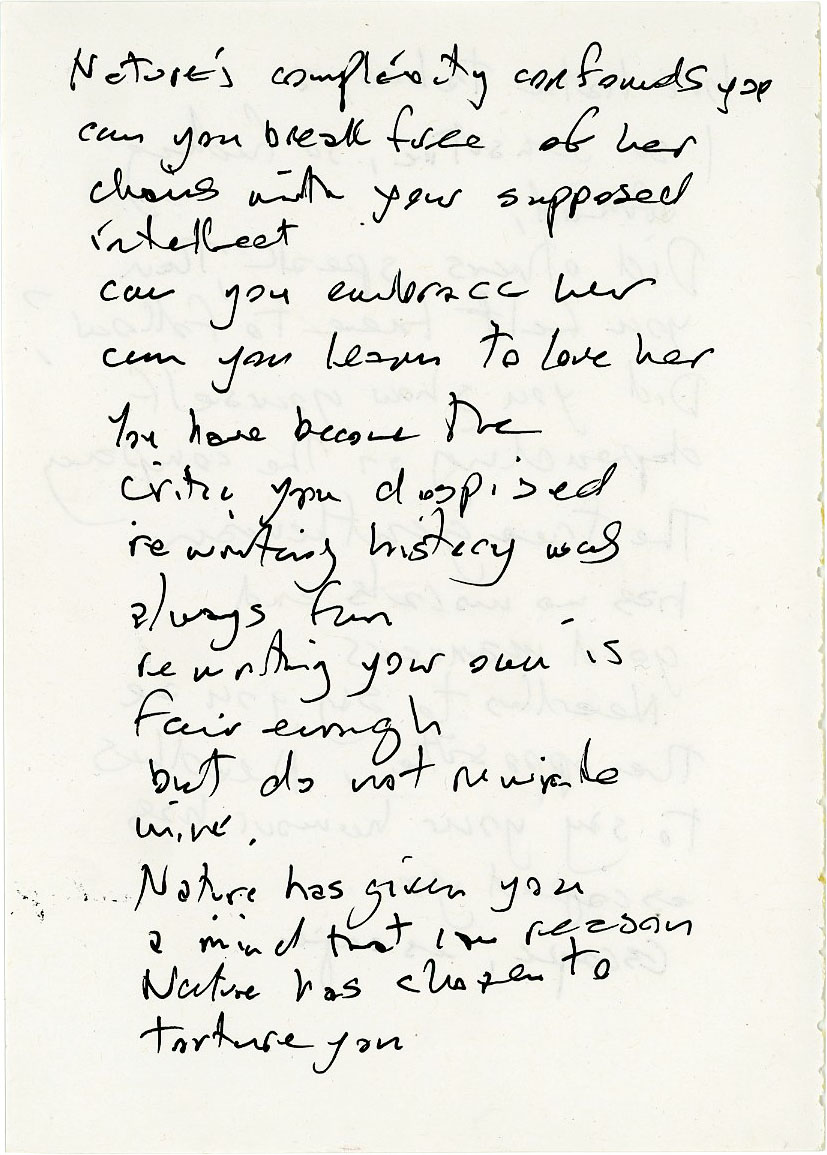 Nature's complexity confounds you
can you break free of her
chains with your supposed
intellect
can you embrace her
can you learn to love her
You have become the
critic you despised
rewriting history was
always fun
rewriting your own is
fair enough
but do not rewrite
mine.
Nature has given you
a mind that can reason
Nature has chosen to
torture you